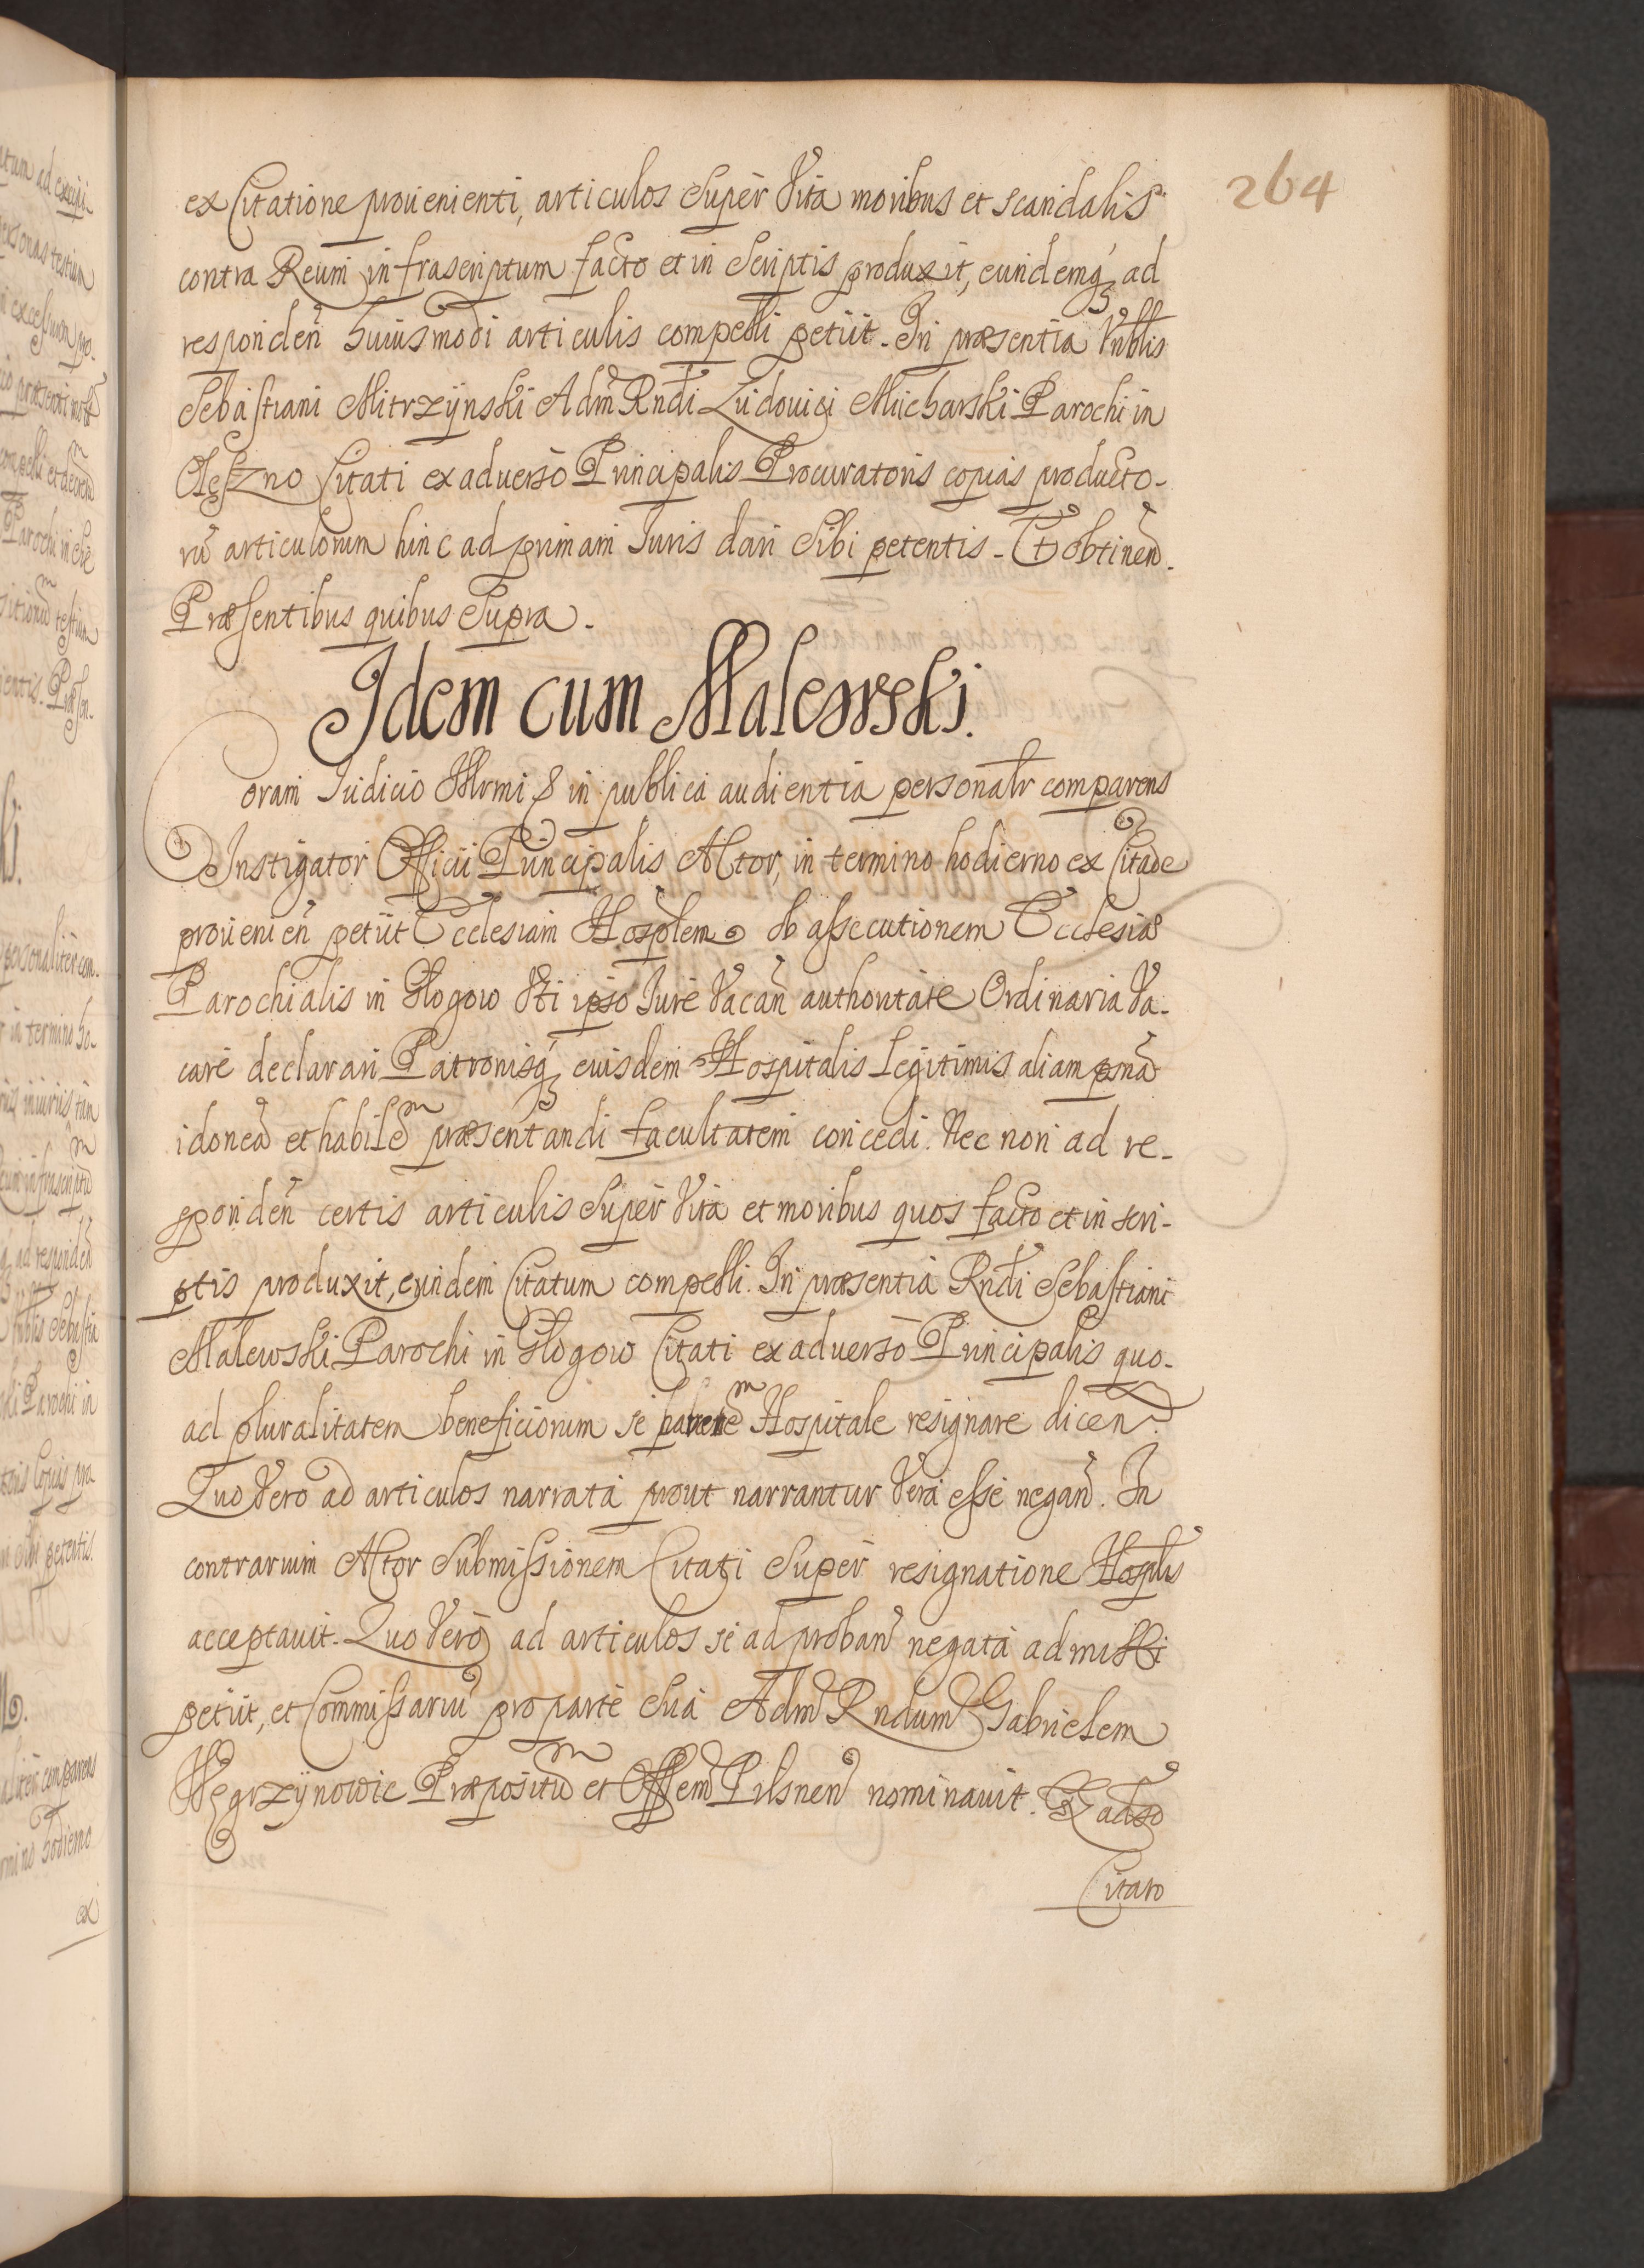 264
ex Citatione prouenienti, articulos Super Vita moribus et scandalis
contra Reum infrascriptum facto et in Scriptis produxit, eundemq́; ad
responden̄ huiusmodi articulis compelli petijt. In præsentia Vnblis
Sebastiani Mitrzÿnski Adm̄ Rndi Ludouici Miicharski Parochi in
Olęszno Citati ex aduerso Principalis Procuratoris copias producto-
rū articulorum hinc ad primam Iuris dari Sibi petentis. Et obtinen̄.
Præsentibus quibus Supra.
Idem cum Malewski.
Coram Iudicio Illrmi & in publica audientia personalr comparens
Instigator Officii Principalis Actor, in termino hodierno ex Citãoe
prouenien̄ petijt Ecclesiam Hosplem ob assecutionem Ecclesiæ
Parochialis in Głogow Vti ipso Iure Vacan̄ authoritate Ordinaria Va-
care declarari Patronisq́; eiusdem Hospitalis Legitimis aliam psnā
idoneā et habilem præsentandi facultatem concedi. Nec non ad re-
sponden̄ certis articulis Super Vita et moribus quos facto et in scri-
ptis produxit, eundem Citatum compelli. In præsentia Rndi Sebastiani
Malewski Parochi in Głogow Citati ex aduerso Principalis quo-
ad pluralitatem beneficiorum se Hospitale resignare dicen̄.
Quo Vero ad articulos narrata prout narrantur Vera esse negan̄. In
contrarium Actor Submissionem Citati Super resignatione Hosplis
acceptauit. Quo Vero ad articulos se ad proban̄ negata admitti
petijt, et Commissariū pro parte Sua Adm̄ Rndum Gabrielem
Węgrzÿnowic Præpositum et Offlem Pilsnen̄ nominauit. Ex adso
Citato